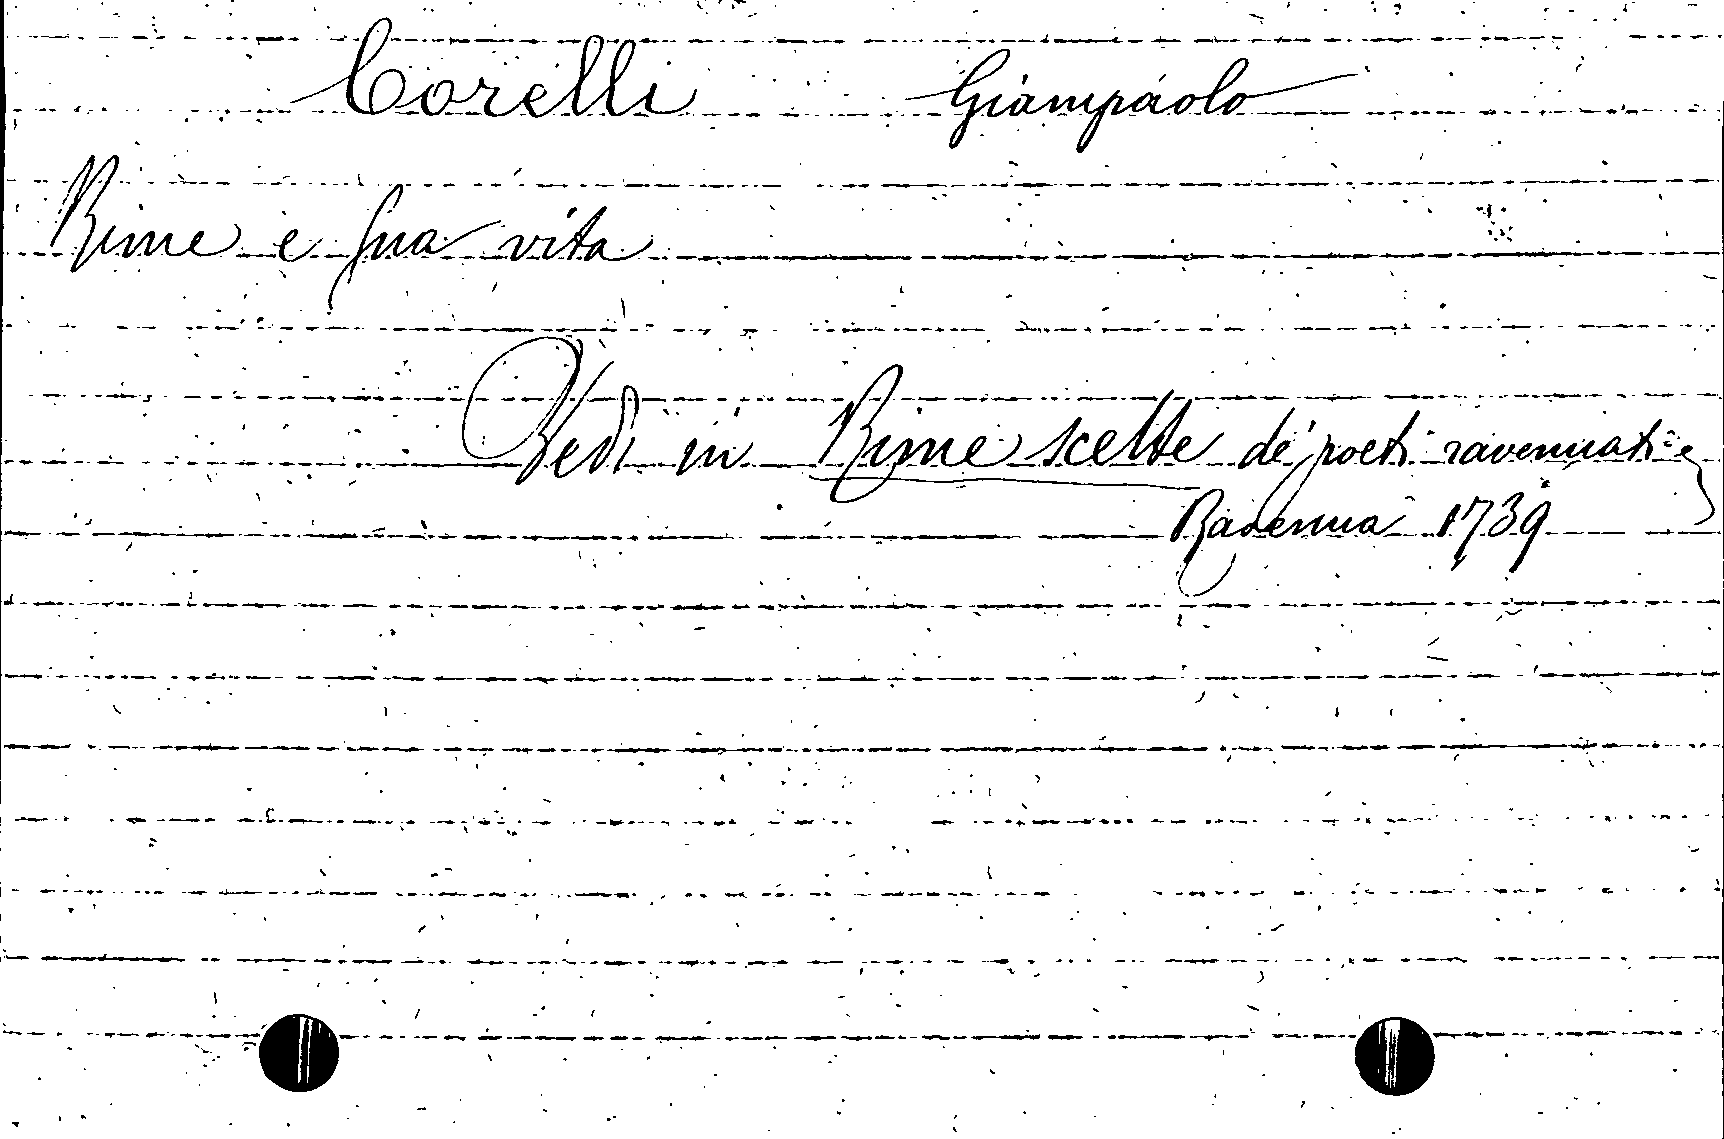 Corelli Giampaolo
Rime e sua vita
Vedi in Rime scelte de' poeti ravennati
Ravenna 1739